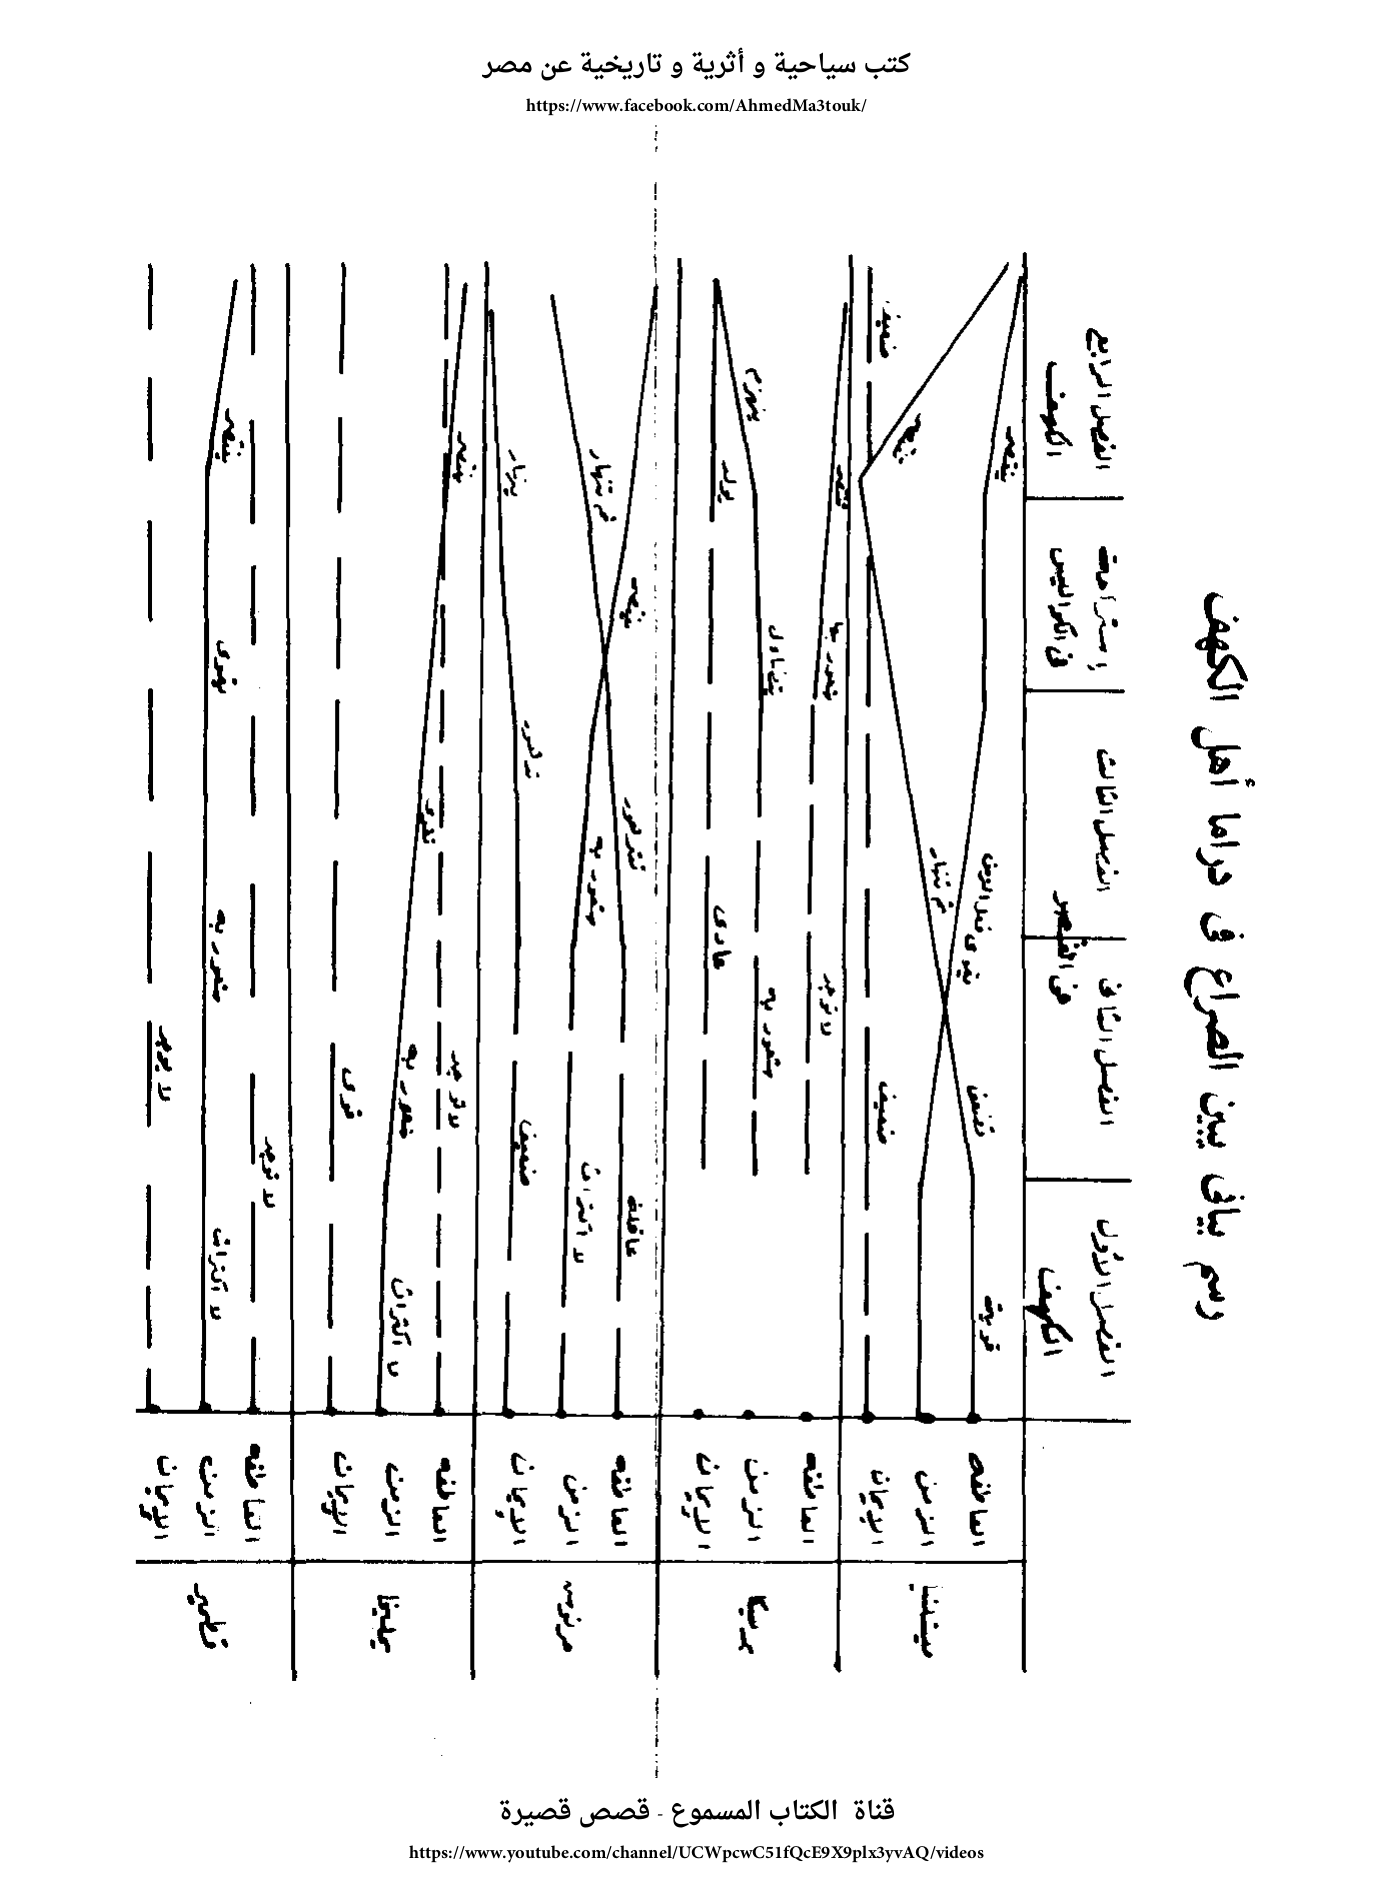 كتب سياحية و أثرية و تاريخية عن مصر
https://www.facebook.com/AhmedMa3touk/
رسم بيانى يبين الصراع فى دراما أهل الكهف
الفصل الأول
الكهف
الفصل الثانى
الفصل الثالث
فى القصر
إستراحة
فى الكواليس
الفصل الرابع
الكهف
ميشلنيا
العاطفه
قوية
تضعف
ثم تنهار
تنتصر
الزمن
ينتصر
الايمان
ضعيف
ضعيف
بريسكا
العاطفه
لا توجد
شعور بها
تنتصر
الزمن
شعور به
يتضاءل
ينهزم
الايمان
عادى
يولد
مرنوش
العاطفه
عاقلة
تتدهور
ثم تنهار
الزمن
لا اكتراث
شعور به
ينتصر
الإيمان
ضعيف
تدهور
ينهار
يمليخا
العاطفه
لا توجد
الزمن
لا اكتراث
شعور به
تقوى
ينتصر
الإيمان
قوى
قطمير
العاطفه
لا توجد
الزمن
لا اكتراث
شعور به
يقوى
ينتصر
الإيمان
لا يوجد
قناة الكتاب المسموع - قصص قصيرة
https://www.youtube.com/channel/UCWpcwC51fQcE9X9plx3yvAQ/videos